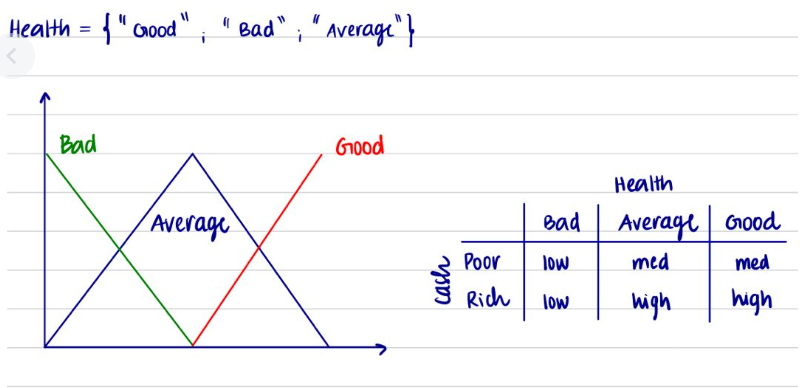 Health = { "Good" ; "Bad" ; "Average" }
Bad
Good
Average
Health
Bad Average Good
Cash
Poor low med med
Rich low high high